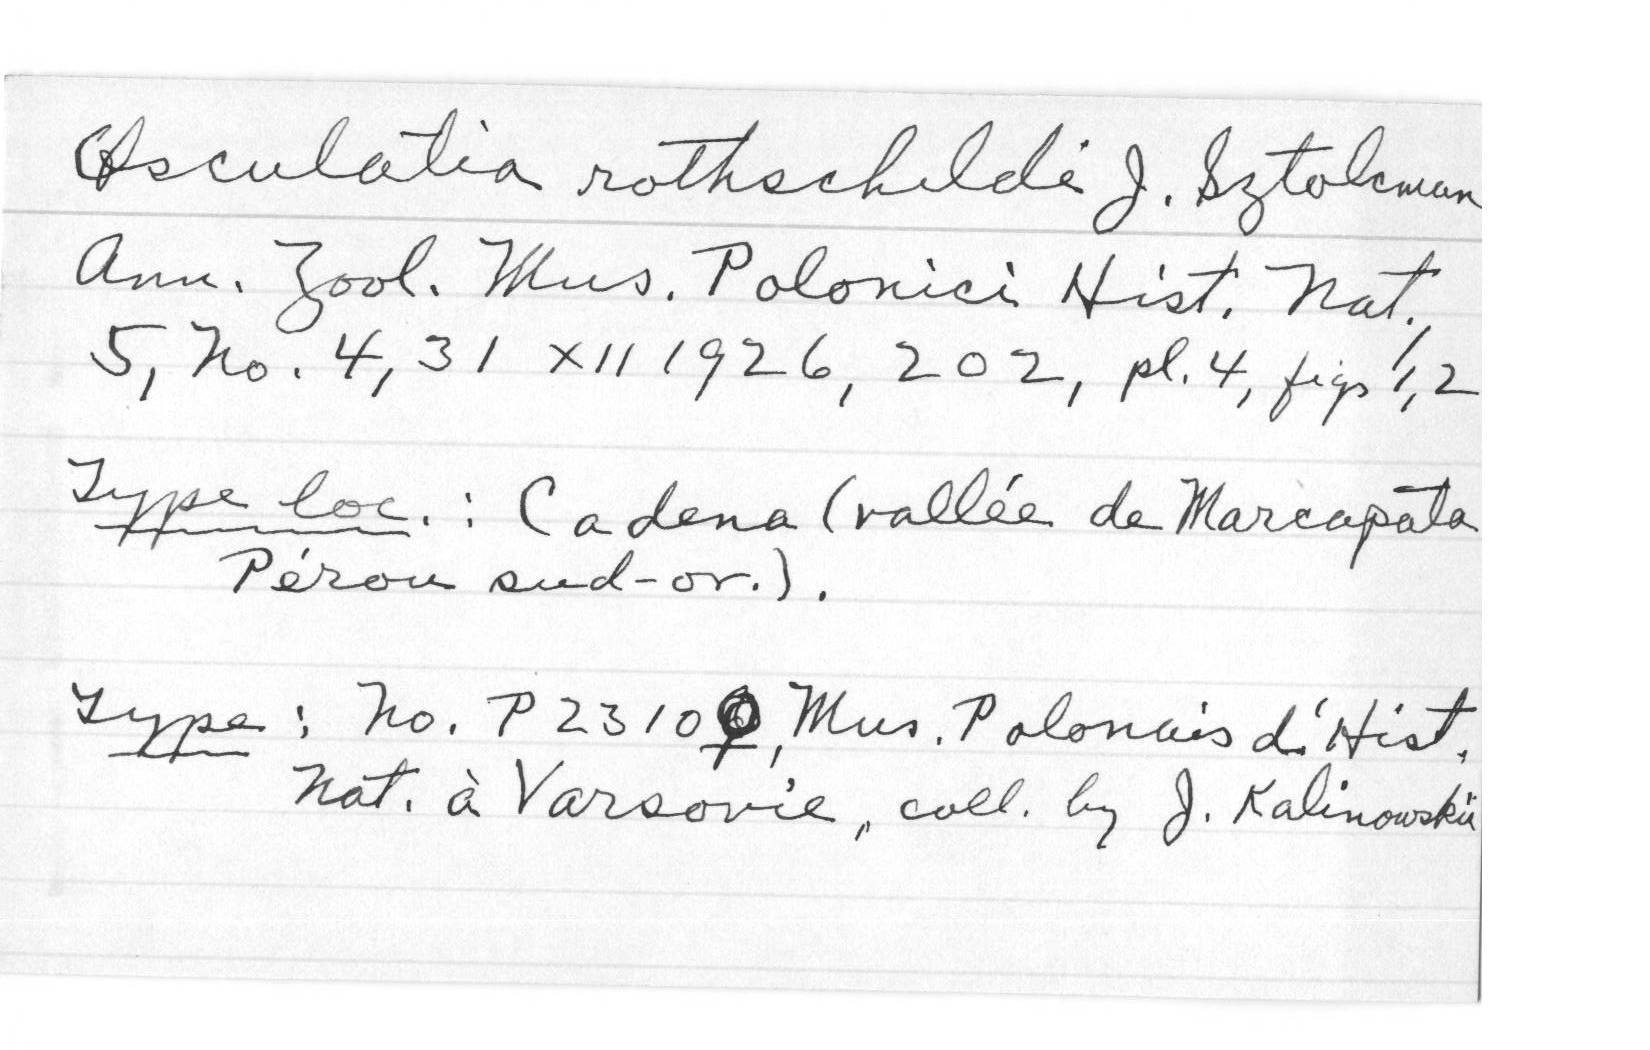 Osculatia rothschildi J. Sztolcman
Ann. Zool. Mus. Polonici Hist. Nat.,
5, No. 4, 31 XII 1926, 202, pl. 4, figs 1, 2
Type loc.: Cadena (vallée de Marcapata
Pérou sud-or.).
Type: No. P 2310 ♀, Mus. Polonais d'Hist.
Nat. à Varsovie, coll. by J. Kalinowskii